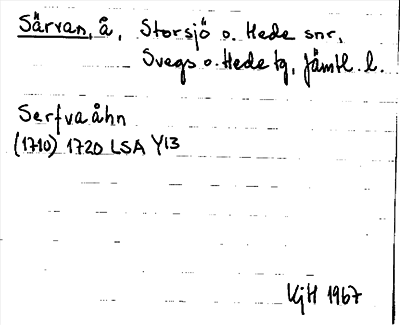 Särvan, å, Storsjö o. Hede snr,
Svegs o. Hede tg, Jämtl. l.
Serfvaåhn
(1710) 1720 LSA Y13
KjH 1967